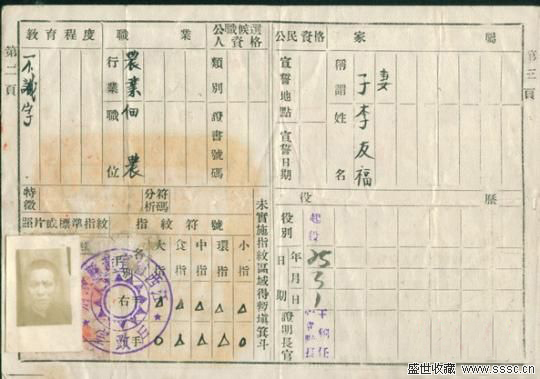 第二頁
教育程度
不識字
職業
行業 農業
職位 佃農
公職候選人資格
類別
證書號碼
特徵
符碼
分析
照片或標準指紋
指紋符號
名別
大指
食指
中指
環指
小指
右手 △ △ △ △ △
手 ○ △ △ △ ○
未實施指紋區域得暫填箕斗
公民資格
宣誓地點
宣誓日期
家屬
稱謂
姓名
妻
子 李友福
役歷
役別
起役
日期
年月日
25 5 1
證明長官
第三頁
盛世收藏 www.sssc.cn